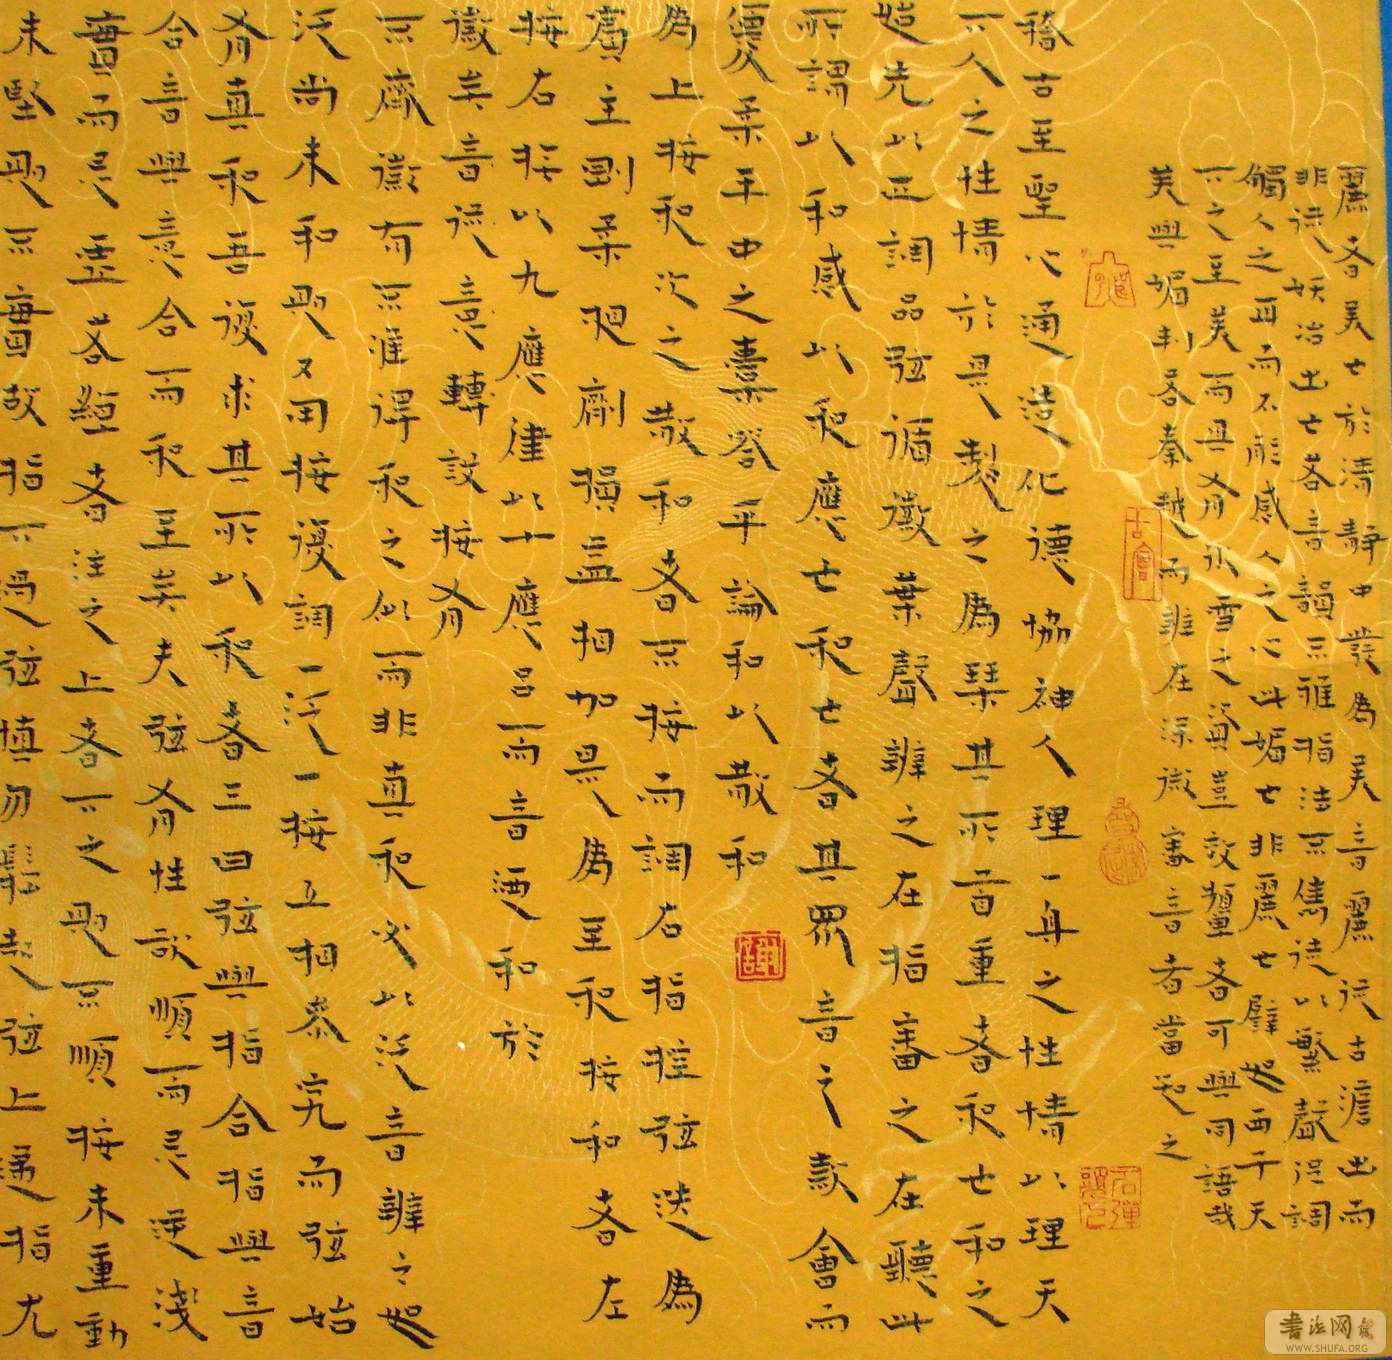 麗者美也於清靜中發為美音麗從古澹出而
非從妖冶出也若音韻不雅指法不雋徒以繁聲促調
觸人之耳而不能感人之心此媚也非麗也譬如西子天
下之至美而具有冰雪之資豈效顰者可與同語哉
美與媚判若秦越而辨在深微審音者當知之
稽古至聖心通造化德協神人理一身之性情以理天
下人之性情於是製之為琴其所首重者和也和之
始先以正調品弦循徽葉聲辨之在指審之在聽此
所謂以和感以和應也和也者其眾音之款會而
優柔平中之橐籥乎論和以散和
為上按和次之散和者不按而調右指控弦迭為
賓主剛柔相劑損益相加是為至和按和者左
按右按以九應律以十應呂而音迺和於
徽矣音從意轉設按有
不齊徽有不準得和之似而非真和必以泛音辨之如
泛尚未和則又用按復調一泛一按互相參究而弦始
有真和吾復求其所以和者三曰弦與指合指與音
合音與意合而和至矣夫弦有性欲順而忌逆淺
實而忌虛若綽者注之上者下之則不順按未重動
未堅則不實故指下過弦慎勿鬆起弦上遞指尤
书法网
WWW.SHUFA.ORG